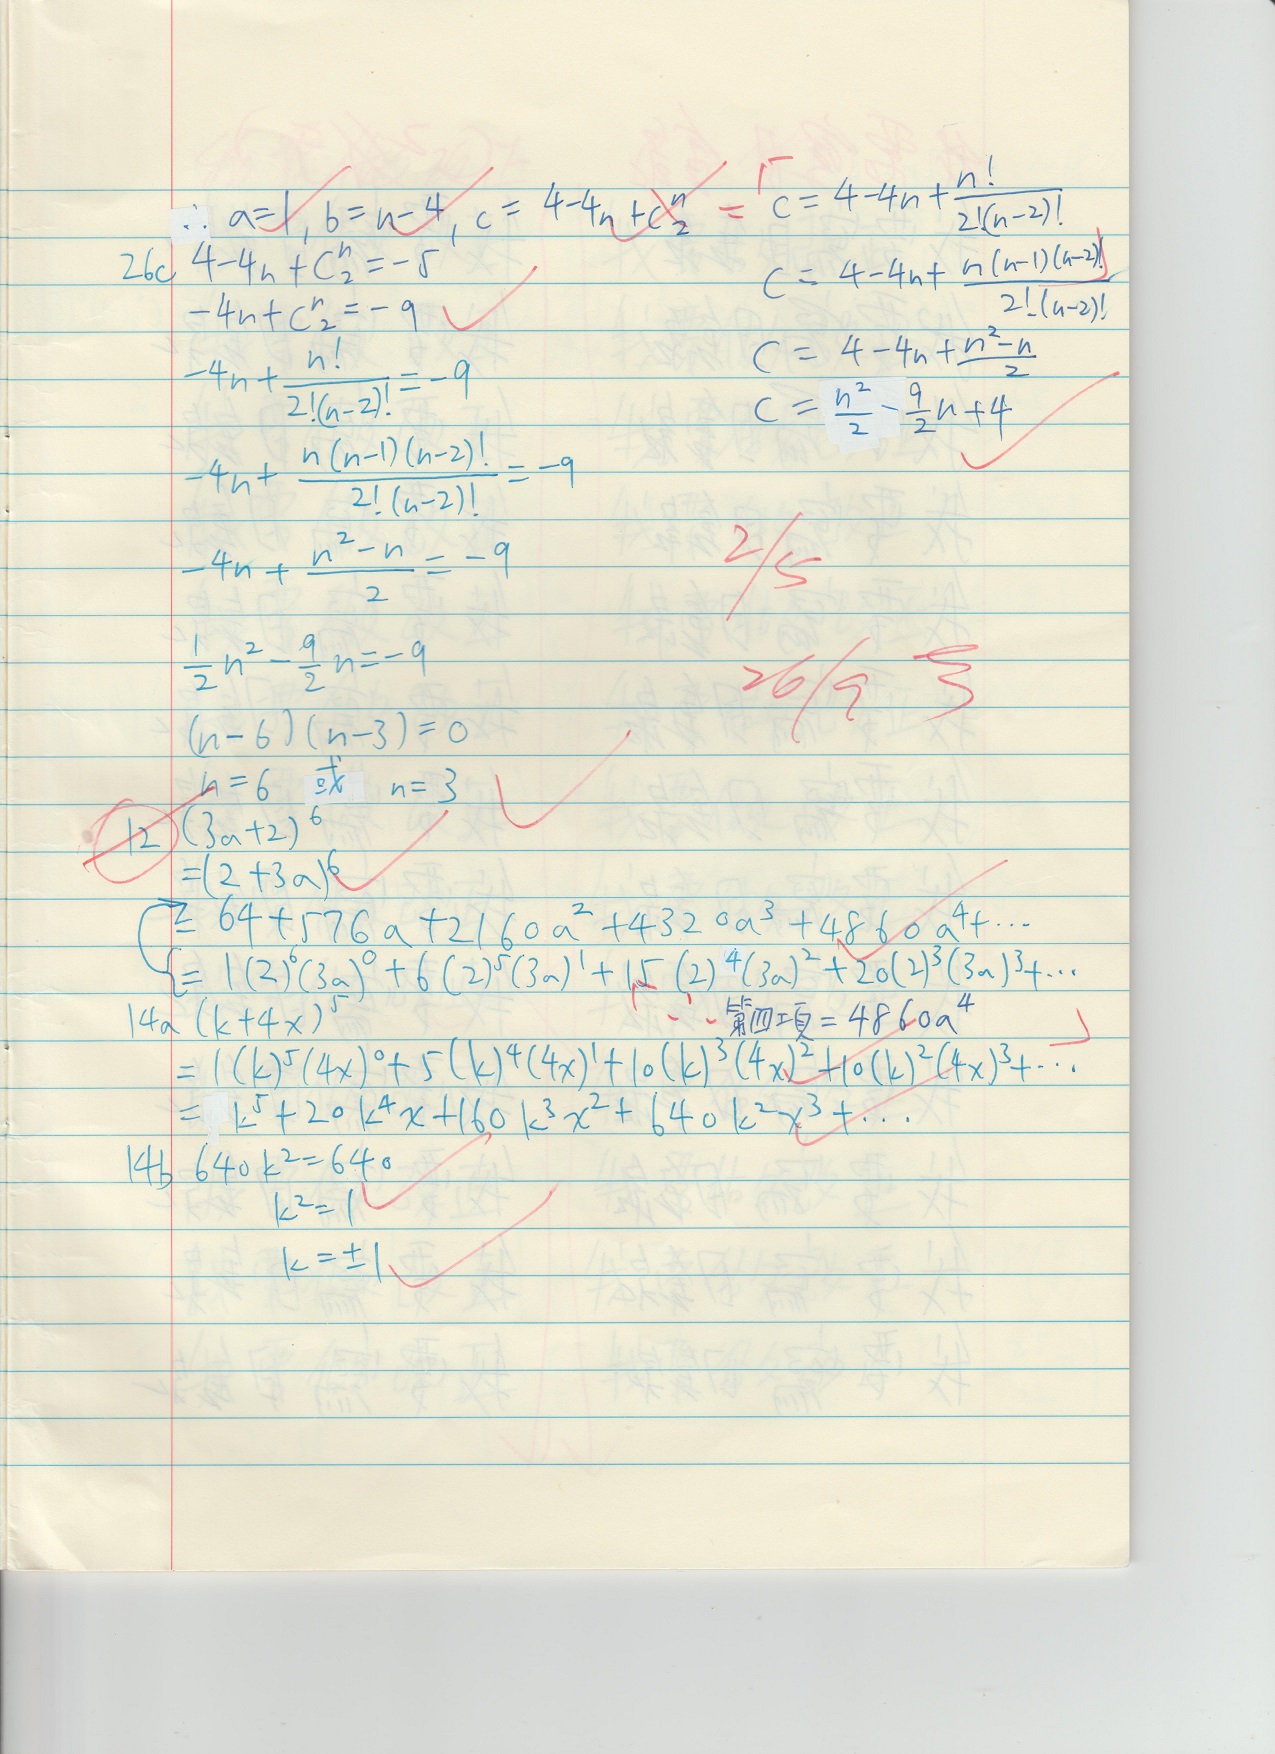 ∴ a=1, b=n-4, c= 4-4n+C₂ⁿ = c=4-4n+n!/2!(n-2)!
26c 4-4n+C₂ⁿ=-5
c= 4-4n+ n(n-1)(n-2)!/2!(n-2)!
-4n+C₂ⁿ=-9
c= 4-4n+ n²-n/2
-4n+ n!/2!(n-2)! =-9
c= n²/2 - 9/2 n+4
-4n+ n(n-1)(n-2)!/2!(n-2)! =-9
2/5
-4n+ n²-n/2 =-9
1/2 n² - 9/2 n=-9
26/9
(n-6)(n-3)=0
n=6 或 n=3
12 (3a+2)⁶
=(2+3a)⁶
= 64+576a+2160a²+4320a³+4860a⁴+...
= 1(2)⁶(3a)⁰+6(2)⁵(3a)¹+15(2)⁴(3a)²+20(2)³(3a)³+...
第四項=4860a⁴
14a (k+4x)⁵
= 1(k)⁵(4x)⁰+5(k)⁴(4x)¹+10(k)³(4x)²+10(k)²(4x)³+...
= k⁵+20k⁴x+160k³x²+640k²x³+...
14b 640k²=640
k²=1
k=±1